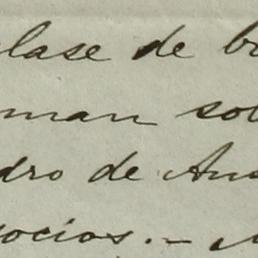 lase de b
man so
dro de An
ocios.— A